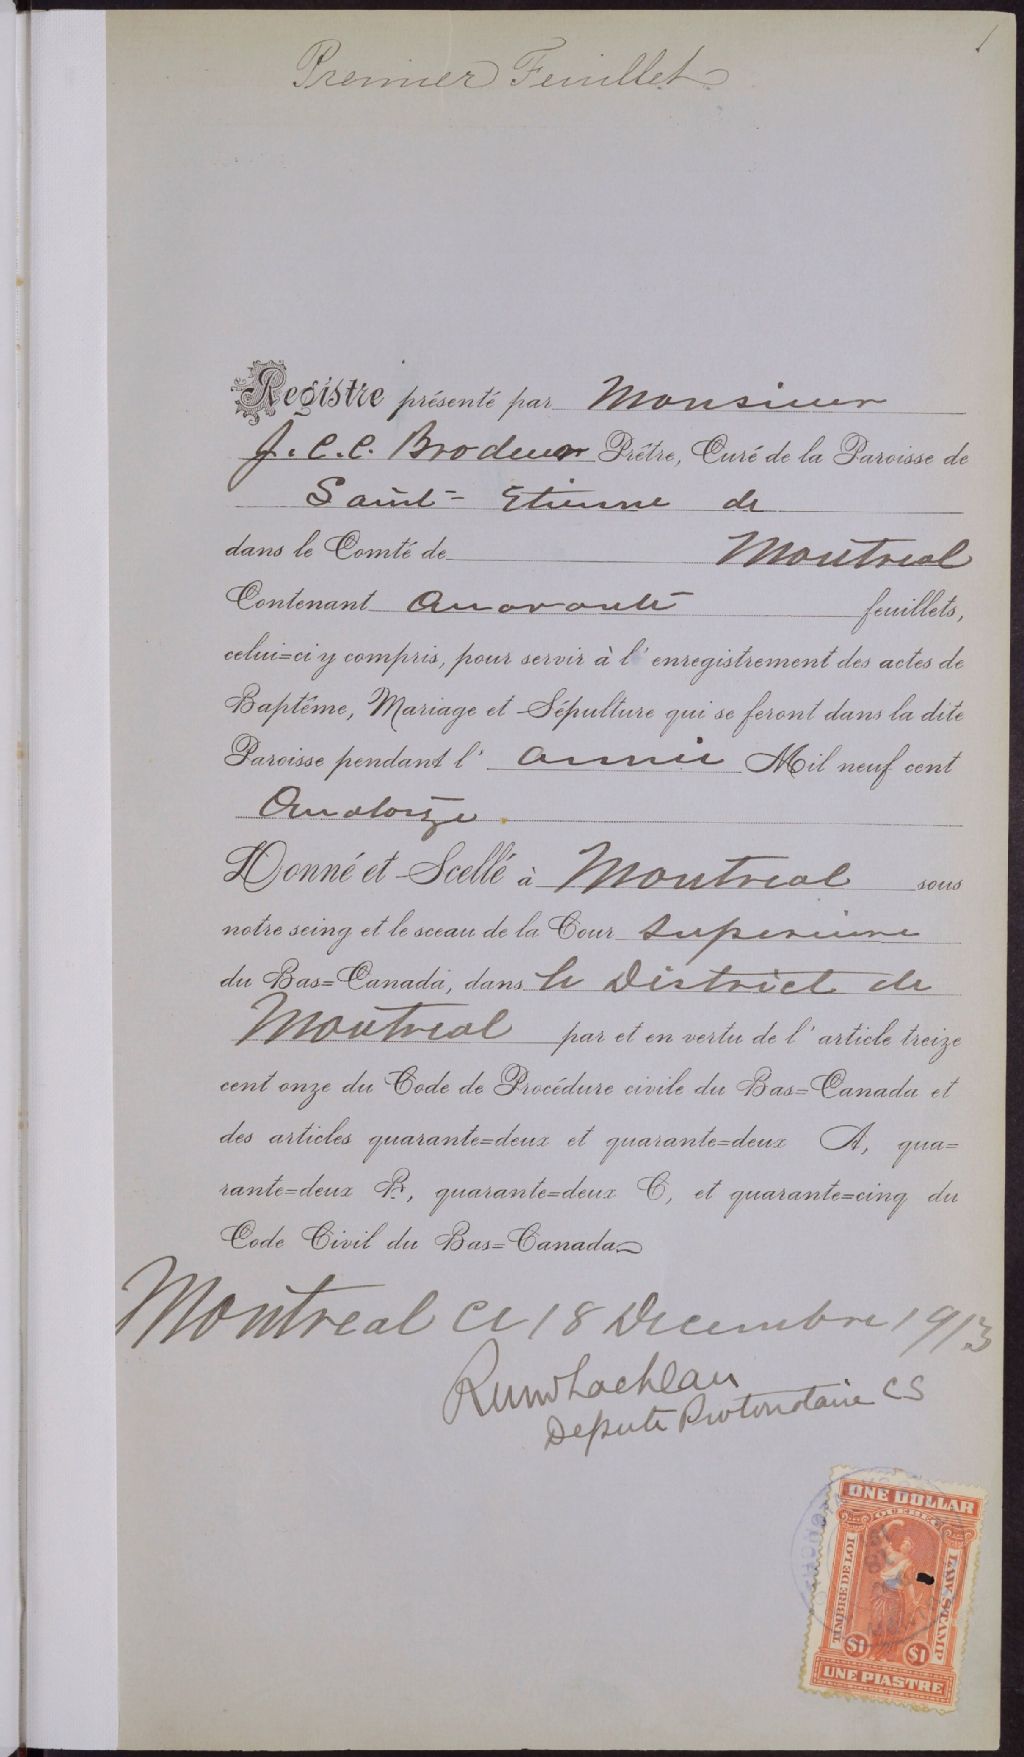 1
Premier Feuillet
Registre présenté par Monsieur
J. C. C. Brodeur Prêtre, Curé de la Paroisse de
Saint-Etienne de
dans le Comté de Montreal
Contenant Quarante feuillets,
celui-ci y compris, pour servir à l'enregistrement des actes de
Baptême, Mariage et Sépulture qui se feront dans la dite
Paroisse pendant l'année Mil neuf cent
Quatorze.
Donné et Scellé à Montreal sous
notre seing et le sceau de la Cour Superieure
du Bas-Canada, dans le District de
Montreal par et en vertu de l'article treize
cent onze du Code de Procédure civile du Bas-Canada et
des articles quarante-deux et quarante-deux A, qua-
rante-deux B, quarante-deux C, et quarante-cinq du
Code Civil du Bas-Canada
Montreal ce 18 Decembre 1913
Depute Protonotaire CS
ONE DOLLAR
QUEBEC
TIMBRE DE LOI
LAW STAMP
$1 $1
UNE PIASTRE